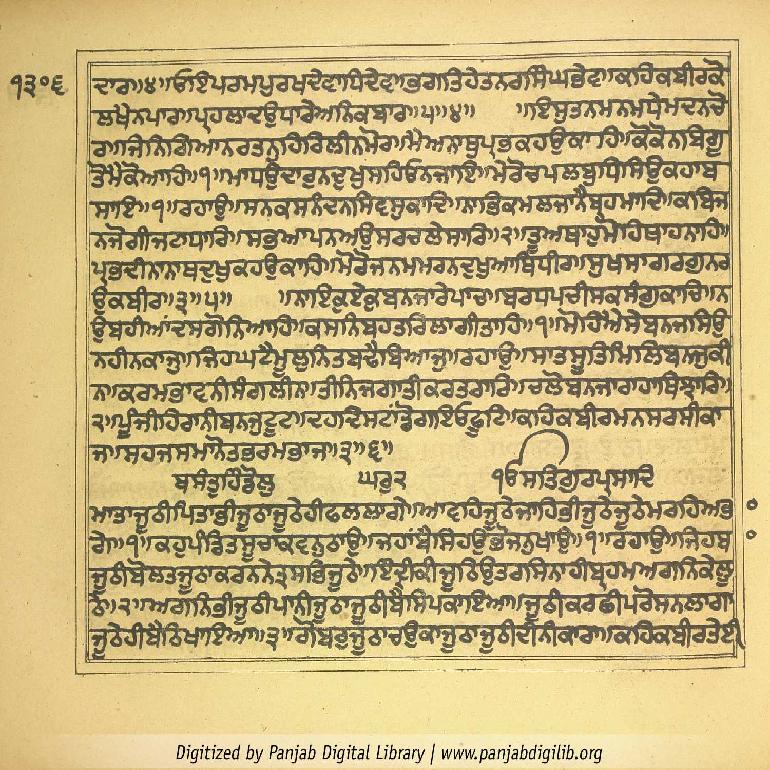 ੧੩੦੬
ਦਾਰ॥੪॥ਓਇਪਰਮਪੁਰਖਦੇਵਾਧਿਦੇਵ॥ਭਗਤਿਹੇਤਨਰਸਿੰਘਭੇਵ॥ਕਹਿਕਬੀਰਕੋ
ਲਖੈਨਪਾਰ॥ਪ੍ਰਹਲਾਦਉਧਾਰੇਅਨਿਕਬਾਰ॥੫॥੪॥ ॥ਇਸੁਤਨਮਨਮਧੇਮਦਨਚੋ
ਰ॥ਜਿਨਿਗਿਆਨਰਤਨੁਹਿਰਿਲੀਨਮੋਰ॥ਮੈਅਨਾਥੁਪ੍ਰਭਕਹਉਕਾਹਿ॥ਕੋਕੋਨਬਿਗੂ
ਤੋਮੈਕੋਆਹਿ॥੧॥ਮਾਧਉਦਾਰੁਨਦੁਖੁਸਹਿਓਨਜਾਇ॥ਮੇਰੋਚਪਲਬੁਧਿਸਿਉਕਹਾਬ
ਸਾਇ॥੧॥ਰਹਾਉ॥ਸਨਕਸਨੰਦਨਸਿਵਸੁਕਾਦਿ॥ਨਾਭਿਕਮਲਜਾਨੇਬ੍ਰਹਮਾਦਿ॥ਕਬਿਜ
ਨਜੋਗੀਜਟਾਧਾਰਿ॥ਸਭਆਪਨਅਉਸਰਚਲੇਸਾਰਿ॥੨॥ਤੂਅਥਾਹੁਮੋਹਿਥਾਹਨਾਹਿ॥
ਪ੍ਰਭਦੀਨਾਨਾਥਦੁਖੁਕਹਉਕਾਹਿ॥ਮੋਰੋਜਨਮਮਰਨਦੁਖੁਆਥਿਧੀਰ॥ਸੁਖਸਾਗਰਗੁਨਰ
ਉਕਬੀਰ॥੩॥੫॥ ॥ਨਾਇਕੁਏਕੁਬਨਜਾਰੇਪਾਚ॥ਬਰਧਪਚੀਸਕਸੰਗੁਕਾਚ॥ਨ
ਉਬਹੀਆਂਦਸਗੋਨਿਆਹਿ॥ਕਸਨਿਬਹਤਰਿਲਾਗੀਤਾਹਿ॥੧॥ਮੋਹਿਐਸੇਬਨਜਸਿਉ
ਨਹੀਨਕਾਜੁ॥ਜਿਹਘਟੈਮੂਲੁਨਿਤਬਢੈਬਿਆਜੁ॥ਰਹਾਉ॥ਸਾਤਸੂਤਮਿਲਿਬਨਜੁਕੀ
ਨ॥ਕਰਮਭਾਵਨੀਸੰਗਲੀਨ॥ਤੀਨਿਜਗਾਤੀਕਰਤਰਾਰਿ॥ਚਲੋਬਨਜਾਰਾਹਾਥਿਝਾਰਿ॥
੨॥ਪੂੰਜੀਹਿਰਾਨੀਬਨਜੁਟੂਟ॥ਦਹਦਿਸਟਾਂਡੋਗਇਓਫੂਟਿ॥ਕਹਿਕਬੀਰਮਨਸਰਸੀਕਾ
ਜ॥ਸਹਜਸਮਾਨੋਤਭਰਮਭਾਜ॥੩॥੬॥
ਬਸੰਤੁਹਿੰਡੋਲੁ ਘਰੁ੨ ੴਸਤਿਗੁਰਪ੍ਰਸਾਦਿ
ਮਾਤਾਜੂਠੀਪਿਤਾਭੀਜੂਠਾਜੂਠੇਹੀਫਲਲਾਗੇ॥ਆਵਹਿਜੂਠੇਜਾਹਿਭੀਜੂਠੇਜੂਠੇਮਰਹਿਅਭਾ
ਗੇ॥੧॥ਕਹੁਪੰਡਿਤਸੂਚਾਕਵਨੁਠਾਉ॥ਜਹਾਂਬੈਸਿਹਉਭੋਜਨੁਖਾਉ॥੧॥ਰਹਾਉ॥ਜਿਹਬ
ਜੂਠੀਬੋਲਤਜੂਠਾਕਰਨਨੇਤ੍ਰਸਭਿਜੂਠੇ॥ਇੰਦ੍ਰੀਕੀਜੂਠਿਉਤਰਸਿਨਾਹੀਬ੍ਰਹਮਅਗਨਿਕੇਲੂ
ਠੇ॥੨॥ਅਗਨਿਭੀਜੂਠੀਪਾਨੀਜੂਠਾਜੂਠੀਬੈਸਿਪਕਾਇਆ॥ਜੂਠੀਕਰਛੀਪਰੋਸਨਲਾਗਾ
ਜੂਠੇਹੀਬੈਠਿਖਾਇਆ॥੩॥ਗੋਬਰੁਜੂਠਾਚਉਕਾਜੂਠਾਜੂਠੀਦੀਨੀਕਾਰਾ॥ਕਹਿਕਬੀਰਤੇਈ
Digitized by Panjab Digital Library | www.panjabdigilib.org